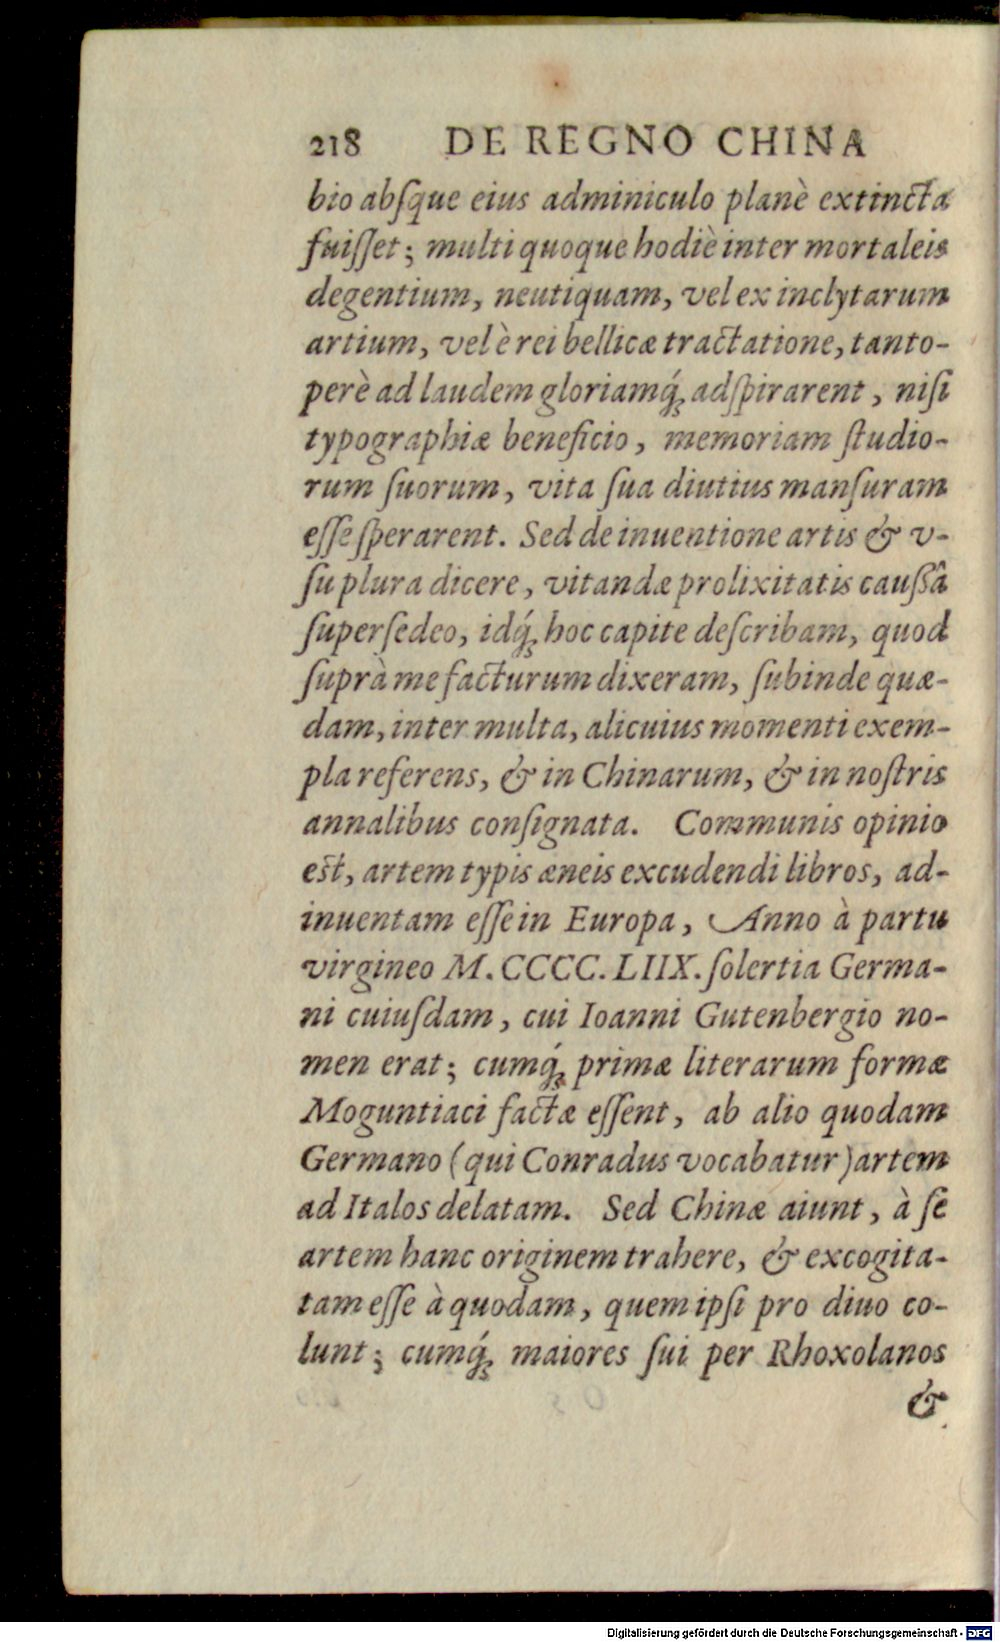 218 DE REGNO CHINA
bio absque eius adminiculo planè extincta
fuisset; multi quoque hodiè inter mortaleis
degentium, neutiquam, vel ex inclytarum
artium, vel è rei bellicæ tractatione, tanto-
perè ad laudem gloriamq́; adspirarent, nisi
typographiæ beneficio, memoriam studio-
rum suorum, vita sua diutius mansuram
esse sperarent. Sed de inuentione artis & v-
su plura dicere, vitandæ prolixitatis caussâ
supersedeo, idq́; hoc capite describam, quod
suprà me facturum dixeram, subinde quæ-
dam, inter multa, alicuius momenti exem-
pla referens, & in Chinarum, & in nostris
annalibus consignata. Communis opinio
est, artem typis æneis excudendi libros, ad-
inuentam esse in Europa, Anno à partu
virgineo M. CCCC. LIIX. solertia Germa-
ni cuiusdam, cui Ioanni Gutenbergio no-
men erat; cumq́; primæ literarum formæ
Moguntiaci factæ essent, ab alio quodam
Germano (qui Conradus vocabatur) artem
ad Italos delatam. Sed Chinæ aiunt, à se
artem hanc originem trahere, & excogita-
tam esse à quodam, quem ipsi pro diuo co-
lunt; cumq́; maiores sui per Rhoxolanos
&
Digitalisierung gefördert durch die Deutsche Forschungsgemeinschaft - DFG